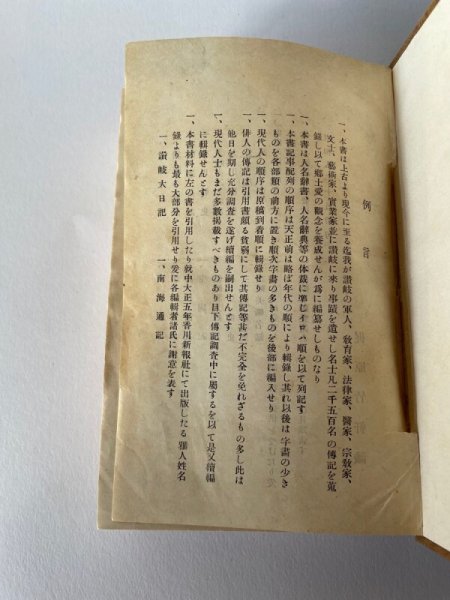 例言
一、本書は上古より現今に至る迄我が讃岐の軍人、敎育家、法律家、醫家、宗敎家、
文士、藝術家、實業家並に讃岐に來り事蹟を遺せし名士凡二千五百名の傳記を蒐
錄し以て鄕土愛の觀念を養成せんが爲に編纂せしものなり
一、本書は人名辭書、人名辭典等の体裁に準じイロハ順を以て列記す
一、本書記事配列の順序は天正前は略ぼ年代の順により輯錄し其れ以後は字畫の少き
ものを各部類の前方に置き順次字畫の多きものを後部に編入せり
一、現代人の順序は原稿到着順に輯錄せり
一、俳人の傳記は引用書頗る貧弱にして其傳記等甚だ不完全を免れざるもの多し此は
他日を期し充分調査を遂げ續編を嗣出せんとす
一、現代人士もまだ多數揭載すべきものあり目下傳記調査中に屬するを以て是又續編
に輯錄せんとす
一、本書材料に左の書を引用したり就中大正五年香川新報社にて出版したる雅人姓名
錄よりも最も大部分を引用せり爰に各編輯者諸氏に謝意を表す
一、讃岐大日記　一、南海通記